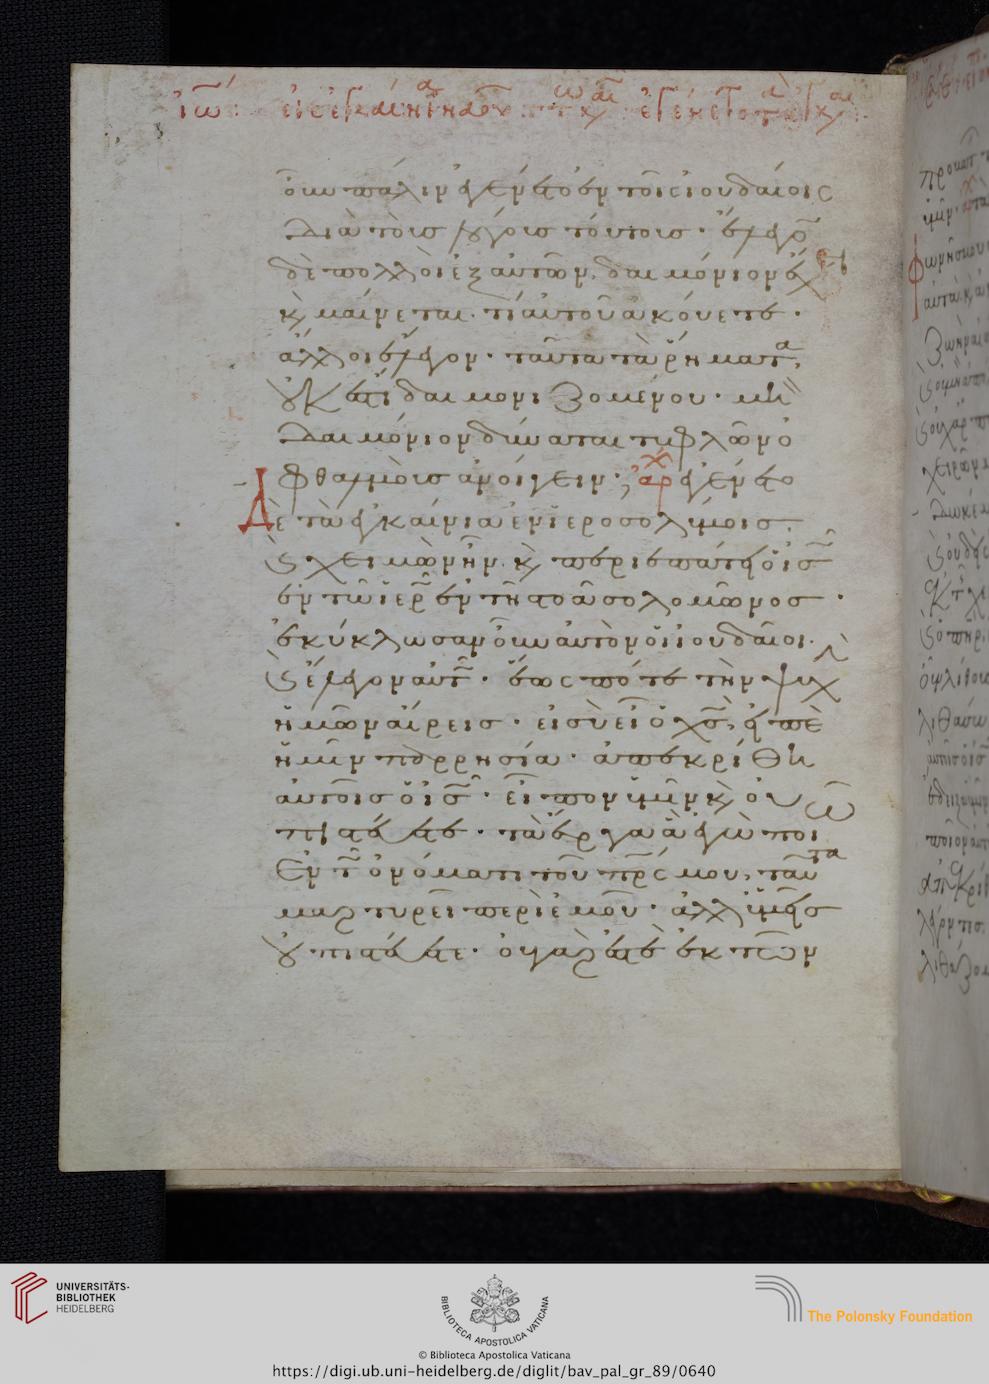 ἰω εἰς ἐγκαίνια ναοῦ τῶ καιρῶ ἐγένετο τὰ ἐγκαι
οὖν πάλιν ἐγένετο ἐν τοῖς ἰουδαίοις
διὰ τοὺς λόγους τούτους· ἔλεγο
δὲ πολλοὶ ἐξ αὐτῶν. δαιμόνιον ἔχει
κ μαίνεται· τί αὐτοῦ ἀκούετε·
ἄλλοι ἔλεγον· ταῦτα τὰ ῥήματα
οὐκ ἔστι δαιμονιζομένου· μὴ
δαιμόνιον δύναται τυφλῶν ὀ
φθαλμοὺς ἀνοίγειν· ἀρχ ἐγένετο
Δὲ τὰ ἐγκαίνια ἐν ἱεροσολύμοις.
κ χειμὼν ἦν. κ περιεπάτει ὁ ις
ἐν τῶ ἱερῶ ἐν τῇ στοᾶ σολομῶνος·
ἐκύκλωσαν οὖν αὐτὸν οἱ ἰουδαῖοι.
κ ἔλεγον αὐτῶ· ἕως πότε τὴν ψυχὴ
ἡμῶν αἴρεις· εἰ σὺ εἶ ὁ χς, εἰπὲ
ἡμῖν παρρησία· ἀπεκρίθη
αὐτοῖς ὁ ις· εἶπον ὑμῖν κ οὐ
πιστεύετε· τὰ ἔργα ἃ ἐγὼ ποιῶ
ἐν τῶ ὀνόματι τοῦ πρς μου, ταῦτα
μαρτυρεῖ περὶ ἐμοῦ· ἀλλ ὑμεῖς
οὐ πιστεύετε· οὐ γάρ ἐστε ἐκ τῶν
UNIVERSITÄTS-
BIBLIOTHEK
HEIDELBERG
BIBLIOTECA APOSTOLICA VATICANA
The Polonsky Foundation
© Biblioteca Apostolica Vaticana
https://digi.ub.uni-heidelberg.de/diglit/bav_pal_gr_89/0640